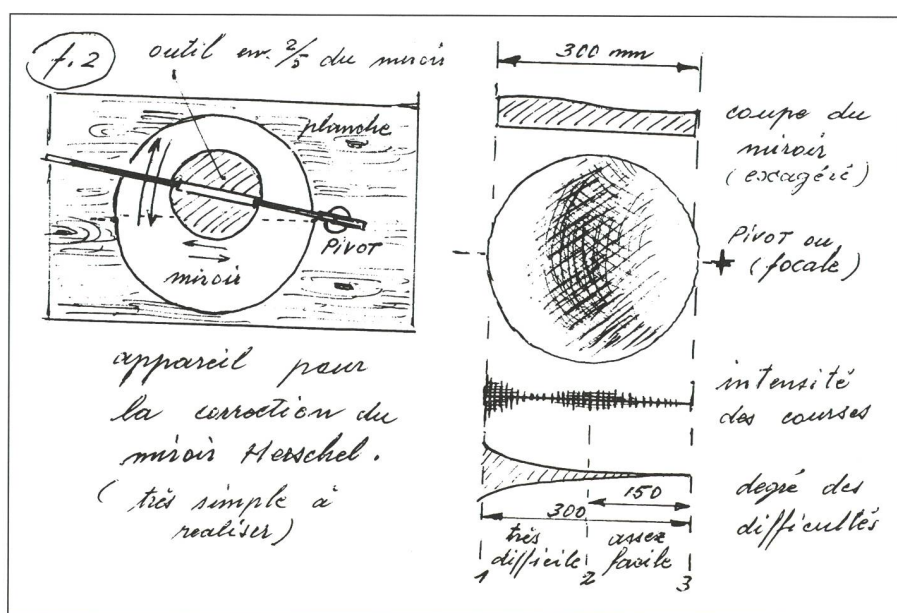 f.2
outil env. 2/5 du miroir
planche
PIVOT
miroir
appareil pour
la correction du
miroir Herschel.
(très simple à
realiser)
300 mm
coupe du
miroir
(exagéré)
PIVOT ou
(focale)
intensité
des courses
degré des
difficultés
150
300
très
difficile
assez
facile
1 2 3